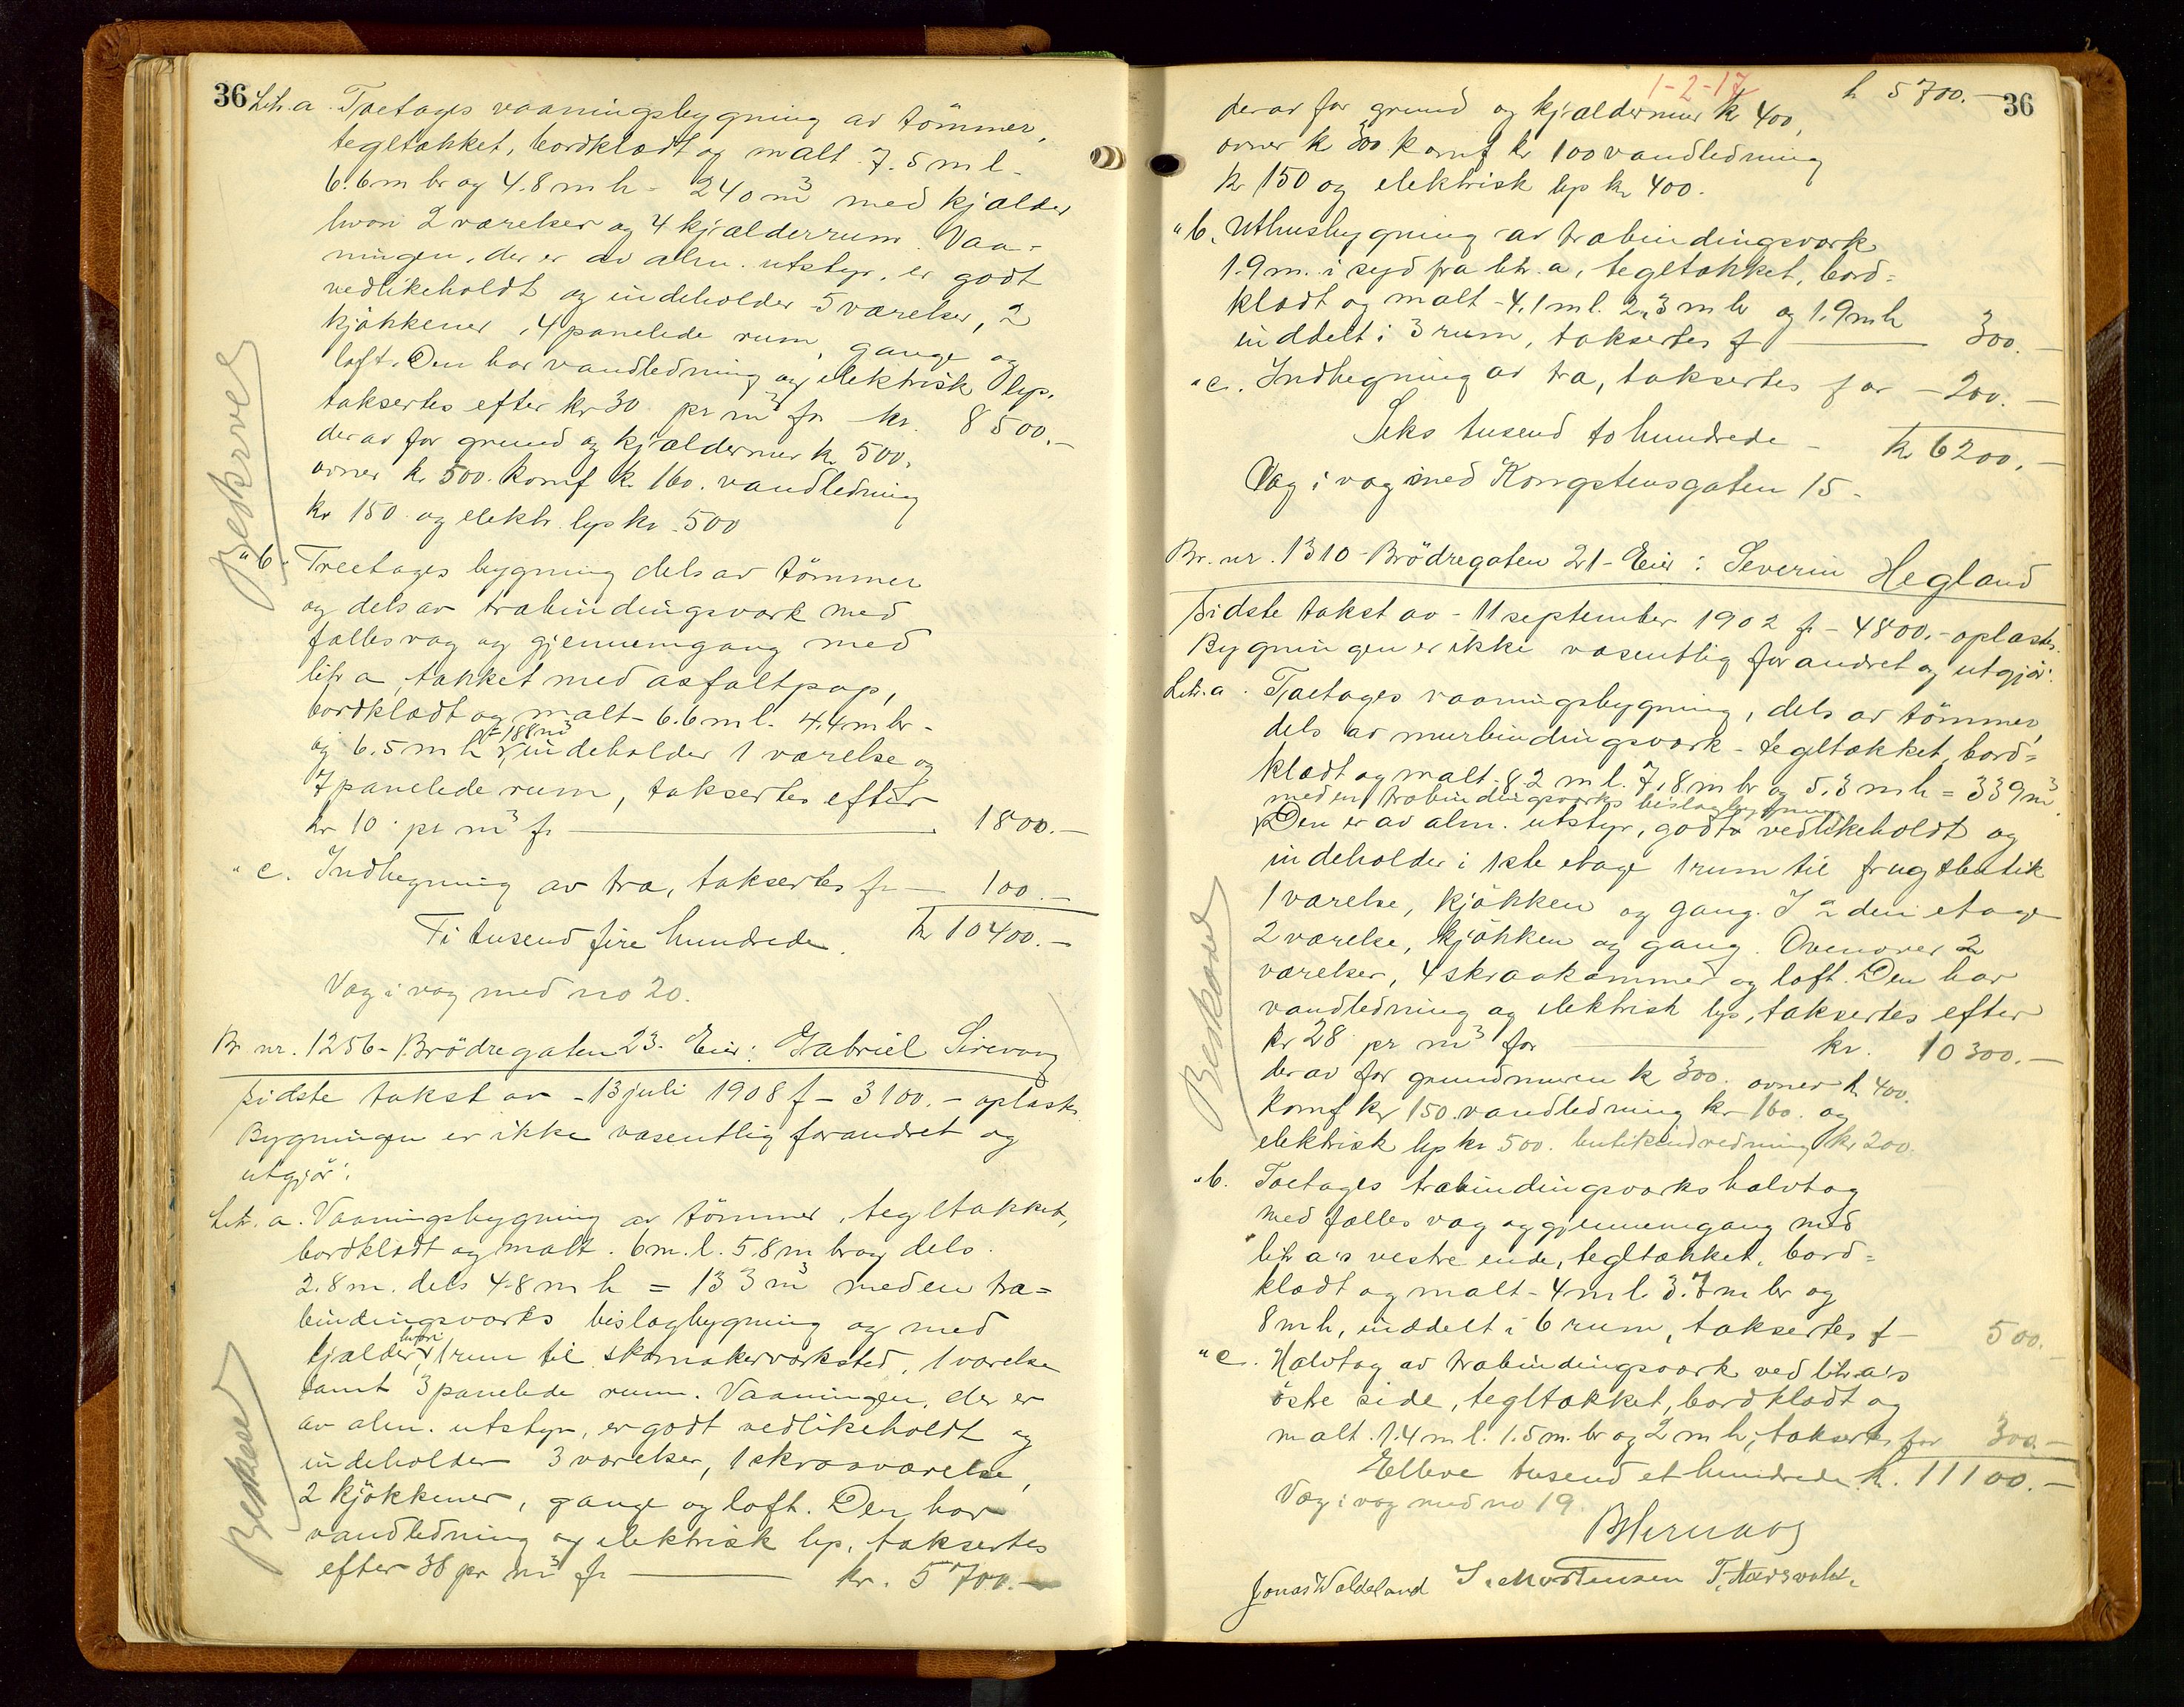 36 Litr. a. Toetages vaaningsbygning av tömmer,
tegltækket, bordklædt og malt. 7.5 m l.
6.6 m br og 4.8 m h - 240 m³ med kjælder
hvori 2 værelser og 4 kjælderrum. Vaa-
ningen, der er av alm. utstyr, er godt
vedlikeholdt og indeholder 5 værelser, 2
kjøkkener, 4 panelede rum, gange og
loft. Den har vandledning og elektrisk lys,
taksertes efter kr 30 pr m³ fr kr. 8500.-
derav for grund og kjældermur kr 500,
ovner kr 500. komf kr 160. vandledning
kr 150 og elektr. lys kr. 500
"b. Treetages bygning dels av tömmer
og dels av træbindingsværk med
fælles væg og gjennemgang med
litr a, tækket med asfaltpap,
bordklædt og malt - 6.6 m l. 4.4 m br -
= 188 m³
og 6.5 m h, indeholder 1 værelse og
7 panelede rum, taksertes efter
kr 10 pr m³ fr 1800.-
"c. Indhegning av træ, taksertes fr 100.-
Ti tusend fire hundrede. kr 10400.-
Væg i væg med no 20.
Br nr. 1256 - Brödregaten 23. Eier: Gabriel Sirevaag
Sidste takst av - 13 juli 1908 f - 3100.- oplæstes.
Bygningen er ikke væsentlig forandret og
utgjør:
Litr. a. Vaaningsbygning av tömmer, tegltækket,
bordklædt og malt. 6 m. l. 5.8 m br og dels
2.8 m. dels 4.8 m h = 133 m³ med en træ=
bindingsværks bislagbygning og med
kjælder, hvori 1 rum til skomakerværksted, 1 værelse
samt 3 panelede rum. Vaaningen, der er
av alm. utstyr, er godt vedlikeholdt og
indeholder 3 værelser, 1 skraaværelse,
2 kjøkkener, gange og loft. Den har
vandledning og elektrisk lys, taksertes
efter 36 pr m³ fr kr. 5700.-
Beskrevet
Beskrevet
1-2-17
kr 5700.- 36
derav for grund og kjældermur kr 400,
ovner kr 300. komf kr 100 vandledning
kr 150 og elektrisk lys kr 400.
"b. Uthusbygning av træbindingsværk
1.9 m. i syd fra litr. a, tegltækket, bord=
klædt og malt - 4.1 m l. 2.3 m br og 1.9 m h
inddelt i 3 rum, taksertes f 300.-
"c. Indhegning av træ, taksertes for - 200.-
Seks tusend to hundrede - kr 6200.-
Væg i væg med Kongstensgaten 15.
Br. nr. 1310 - Brödregaten 21 - Eier: Severin Hegland
Sidste takst av - 11 september 1902 f - 4800.- oplæstes.
Bygningen er ikke væsentlig forandret og utgjør:
Litr. a. Toetages vaaningsbygning, dels av tömmer,
dels av murbindingsværk - tegltækket, bord=
klædt og malt - 8.2 m l. 7.8 m br og 5.3 m h = 339 m³.
med en træbindingsværks bislagbygning
Den er av alm. utstyr, godt vedlikeholdt og
indeholder i 1ste etage 1 rum til frugtbutik
1 værelse, kjøkken og gang. I 2den etage
2 værelse, kjøkken og gang. Ovenover 2
værelser, 4 skraakammer og loft. Den har
vandledning og elektrisk lys, taksertes efter
kr 28 pr m³ for kr. 10300.-
derav for grundmuren kr 300. ovner kr 400.
Komf kr 150. vandledning kr 160. og
elektrisk lys kr 500. butikindredning kr 200.
"b. Toetages træbindingsværks halvtag
med fælles væg og gjennemgang med
litr a's vestre ende, tegltækket, bord=
klædt og malt - 4 m l. 3.7 m br og
8 m h, inddelt i 6 rum, taksertes f - 500.-
"c. Halvtag av træbindingsværk ved litr. a's
östre side, tegltækket, bordklædt og
malt. 1.4 m l. 1.5 m. br og 2 m h, taksertes for 300.-
Elleve tusend et hundrede kr. 11100.-
Væg i væg med no 19.
Jonas Waldeland S. Mortensen
Beskrevet